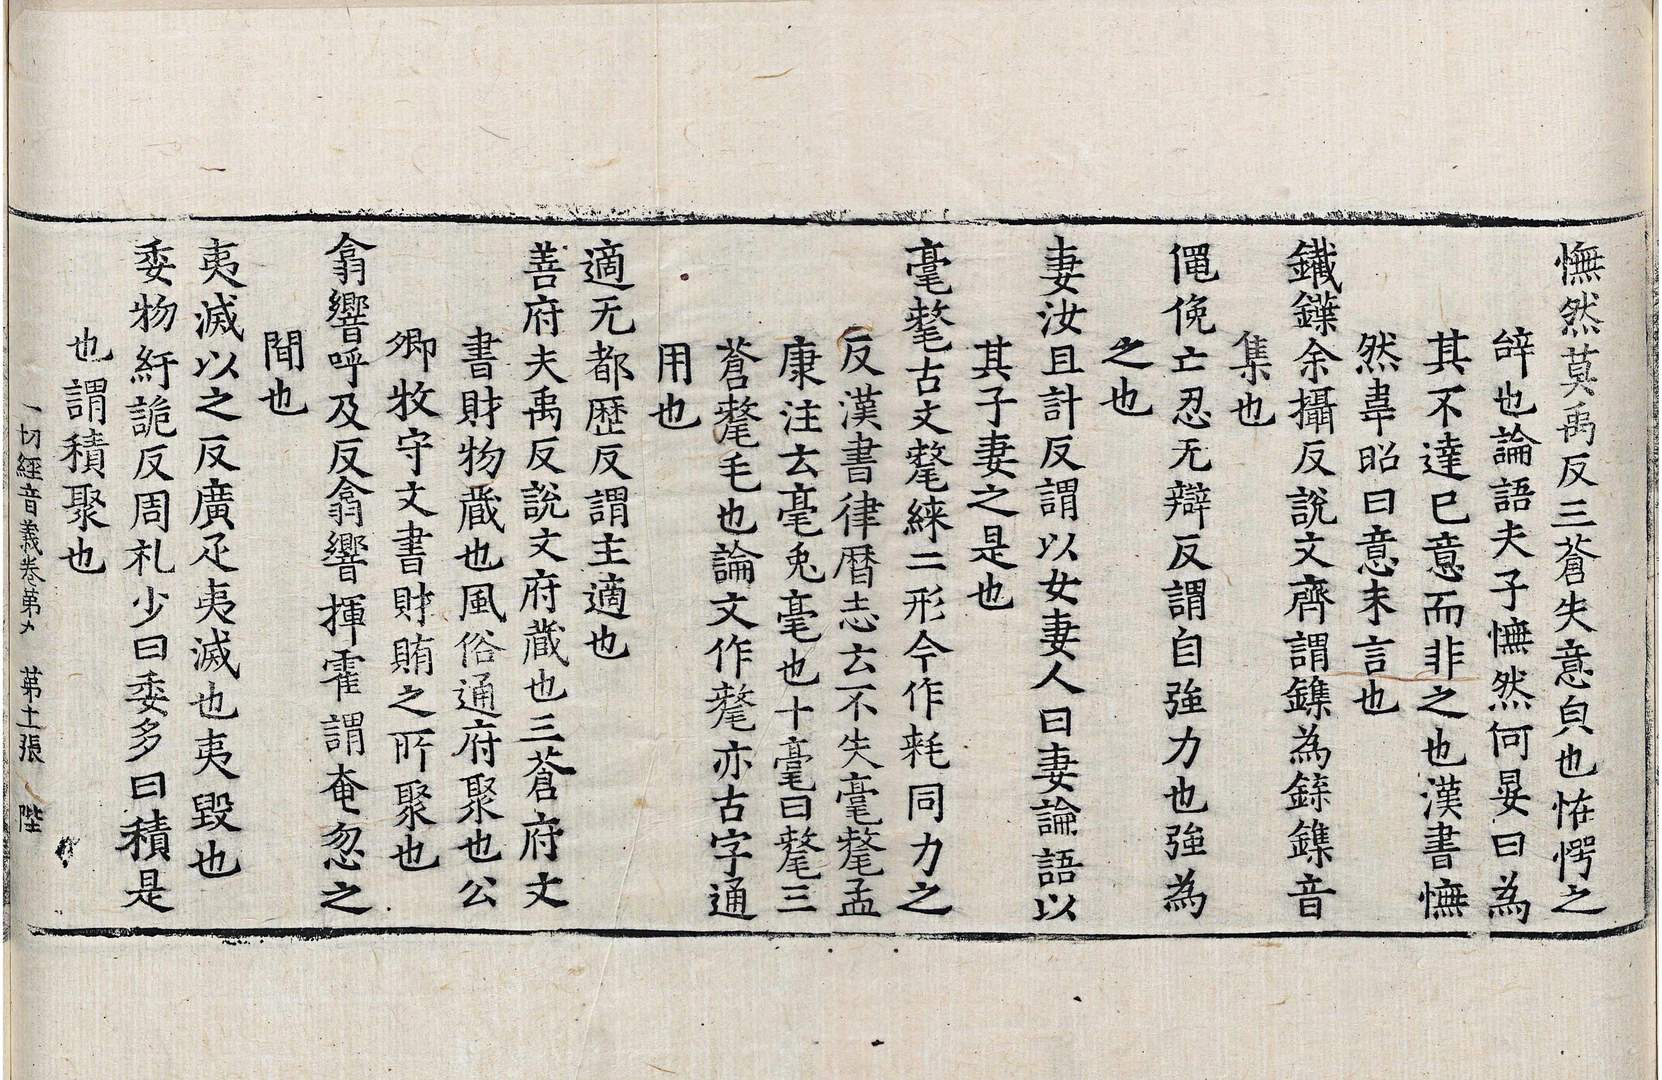 憮然莫禹反三蒼失意皃也恠愕之
辝也論語夫子憮然何晏曰為
其不達已意而非之也漢書憮
然韋昭曰意未言也
鑯鏶余攝反說文齊謂鏶為鉌鏶音
集也
僶俛亡忍无辯反謂自強力也強為
之也
妻汝且計反謂以女妻人曰妻論語以
其子妻之是也
毫氂古文氂練二形今作耗同力之
反漢書律曆志云不失毫氂孟
康注云毫兔毫也十毫曰氂三
蒼氂毛也論文作氂亦古字通
用也
適无都歷反謂主適也
善府夫禹反說文府藏也三蒼府文
書財物藏也風俗通府聚也公
卿牧守文書財賄之所聚也
翕響呼及反翕響揮霍謂奄忽之
間也
夷滅以之反廣疋夷滅也夷毀也
委物紆詭反周礼少曰委多曰積是
也謂積聚也
一切經音義卷第九 第十二張 陛